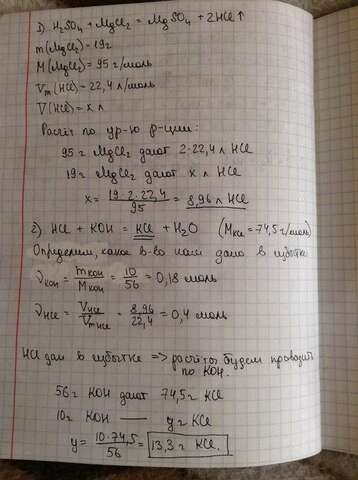 1). H₂SO₄ + MgCl₂ = MgSO₄ + 2HCl↑
m(MgCl₂) = 19г
M(MgCl₂) = 95 г/моль
Vm(HCl) = 22,4 л/моль
V(HCl) = x л
Расчёт по ур-ю р-ции:
95 г MgCl₂ дают 2·22,4 л HCl
19 г MgCl₂ дают x л HCl
x = 19·2·22,4 / 95 = 8,96 л HCl
2) HCl + KOH = KCl + H₂O (M KCl = 74,5 г/моль)
Определим, какое в-во нам дано в избытке
ν KOH = m KOH / M KOH = 10 / 56 = 0,18 моль
ν HCl = V HCl / Vm HCl = 8,96 / 22,4 = 0,4 моль
HCl дан в избытке => расчёты будем проводить
по KOH.
56 г KOH дают 74,5 г KCl
10 г KOH — y г KCl
y = 10·74,5 / 56 = 13,3 г KCl.